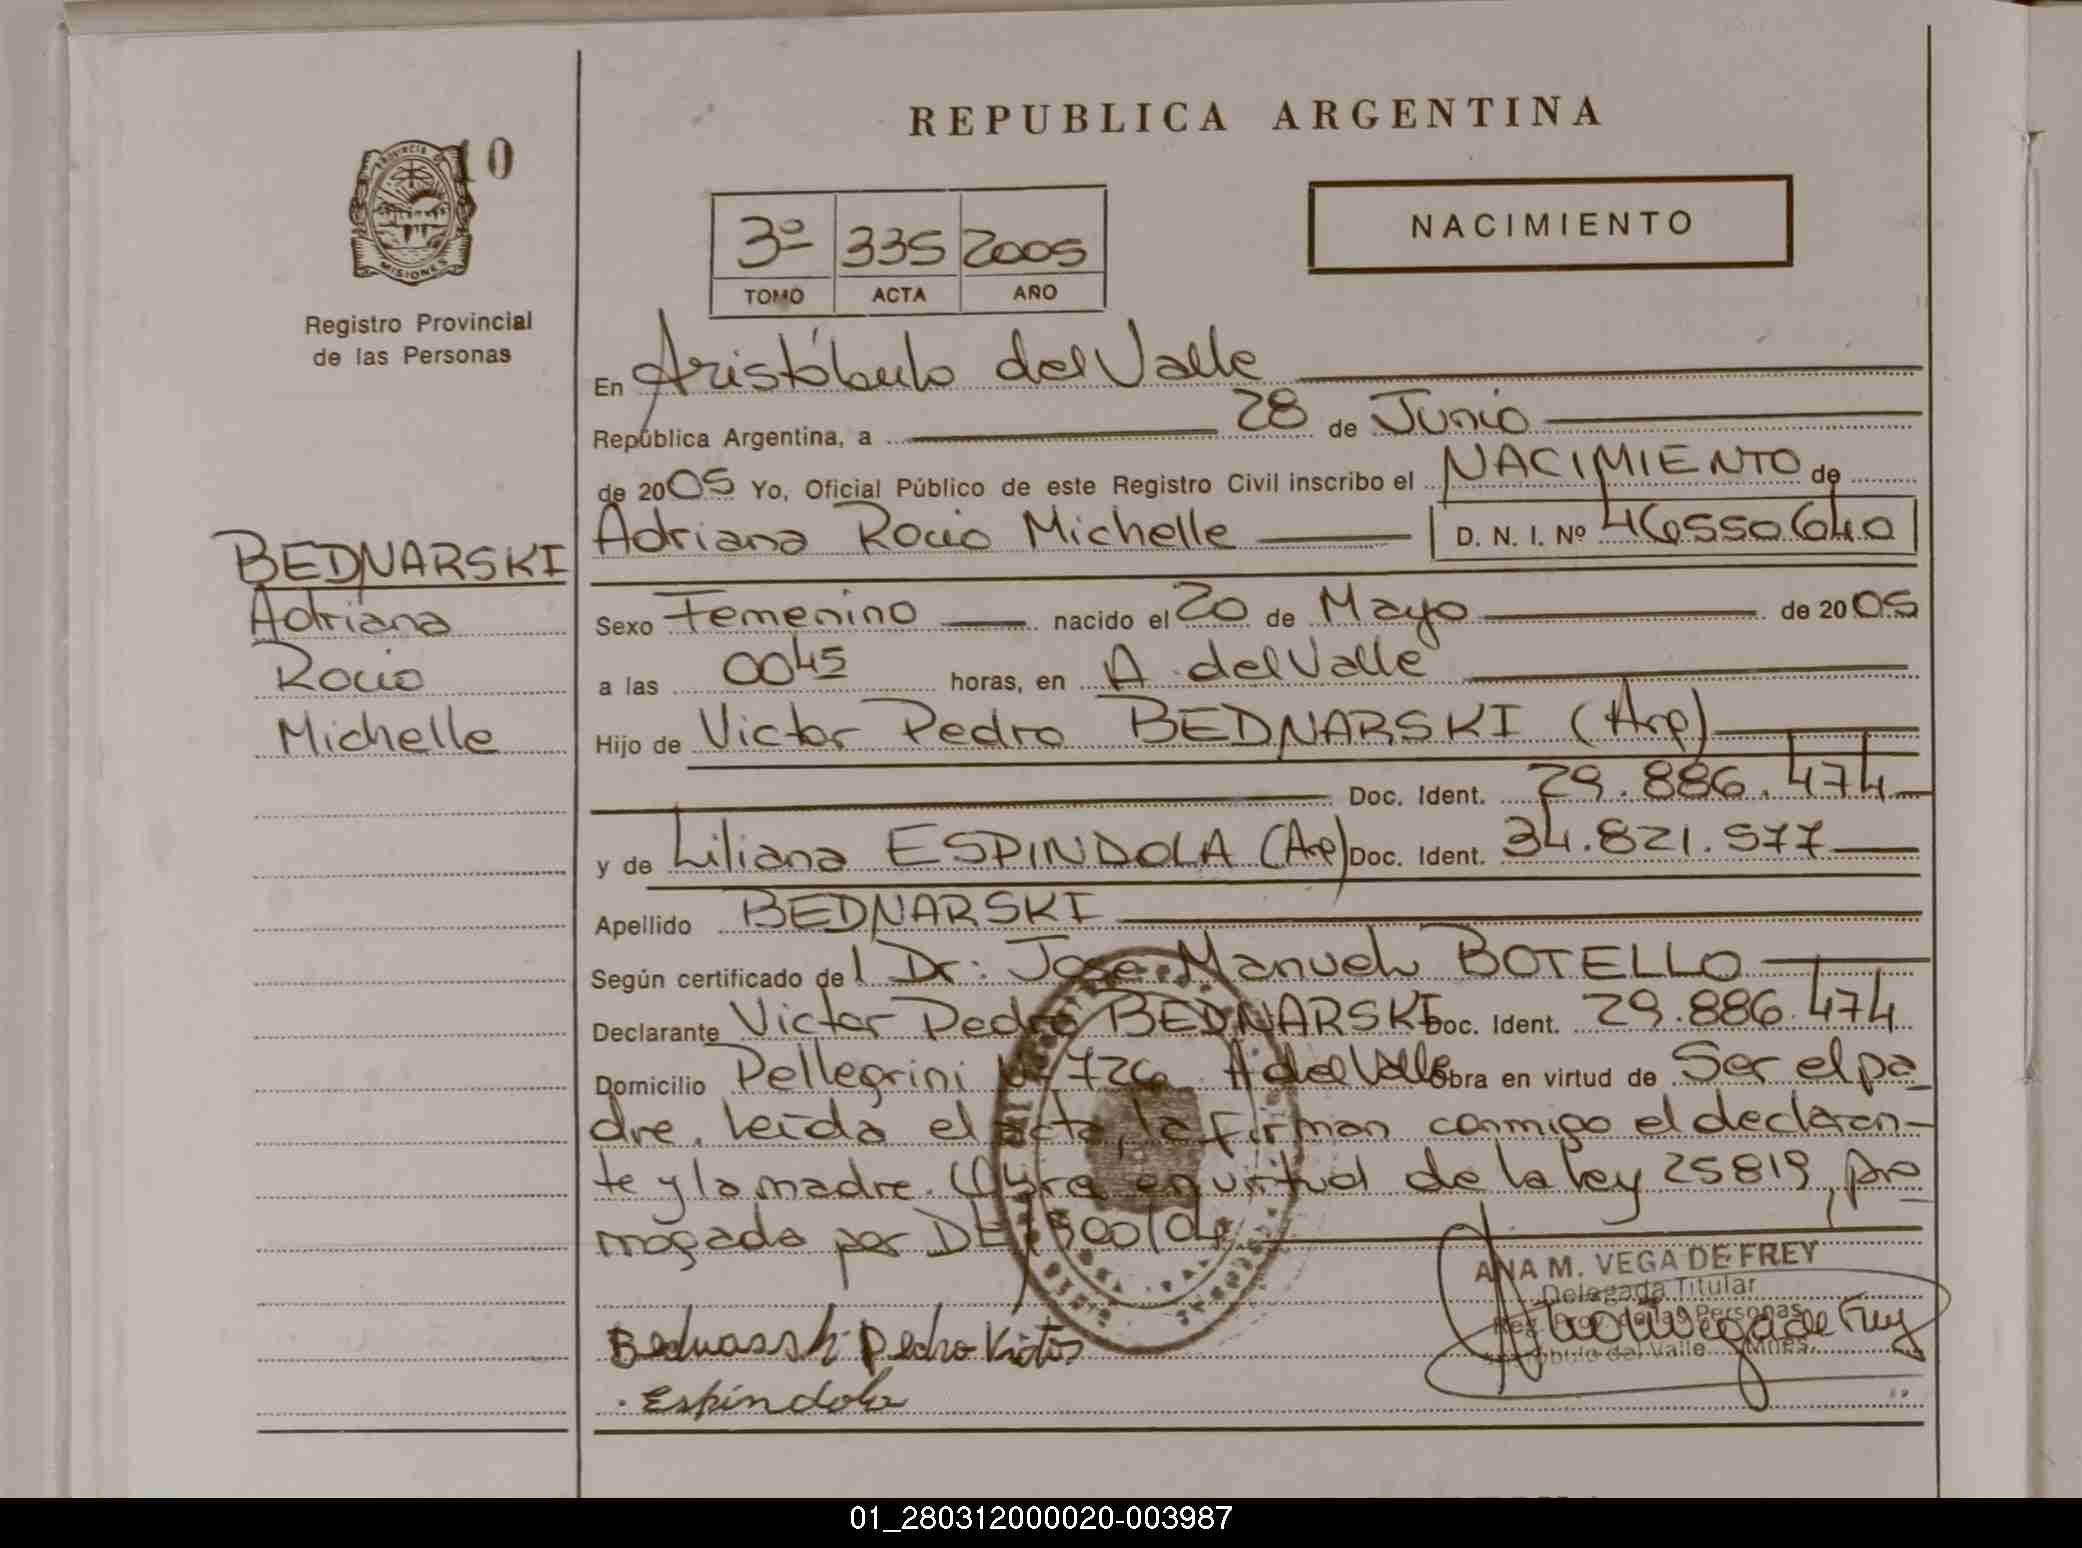 REPUBLICA ARGENTINA
10
PROVINCIA DE
MISIONES
Registro Provincial
de las Personas
3º 335 2005
TOMO ACTA AÑO
NACIMIENTO
En Aristóbulo del Valle
República Argentina, a 28 de Junio
de 2005 Yo, Oficial Público de este Registro Civil inscribo el NACIMIENTO de
Adriana Rocio Michelle D. N. I. Nº 46550640
BEDNARSKI
Adriana
Rocio
Michelle
Sexo Femenino nacido el 20 de Mayo de 2005
a las 0045 horas, en A. del Valle
Hijo de Victor Pedro BEDNARSKI (Arg)
Doc. Ident. 29.886.474
y de Liliana ESPINDOLA (Arg) Doc. Ident. 34.821.577
Apellido BEDNARSKI
Según certificado del Dr: Jose Manuel BOTELLO
Declarante Victor Pedro BEDNARSKI Doc. Ident. 29.886.474
Domicilio Pellegrini Nº 726 A del Valle Obra en virtud de Ser el pa
dre. Leída el acta, la firman conmigo el declaran-
te y la madre. Obra en virtud de la ley 25819, pro
mogada por DE 1300/04
ANA M. VEGA DE FREY
Delegada Titular
Reg. Prov. de las Personas
Aristóbulo del Valle Mnes.
Bednarski Pedro Victor
Espindola
01_280312000020-003987